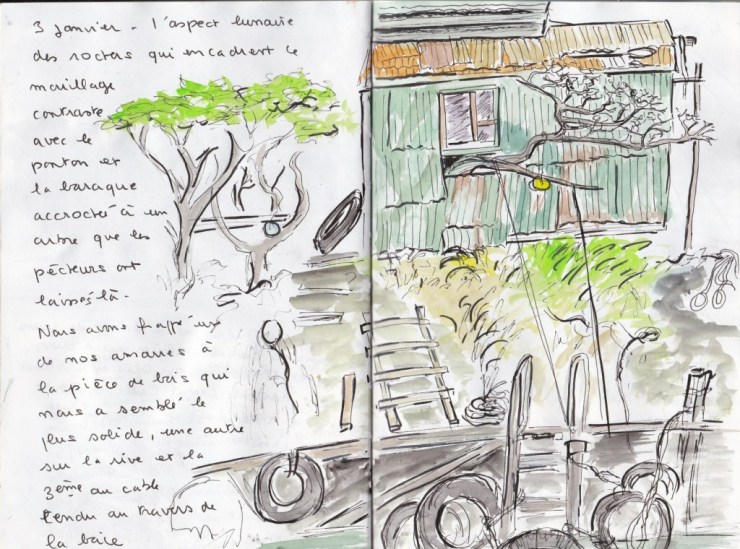 3 Janvier - l'aspect lunaire
des rochers qui encadrent ce
mouillage
contraste
avec le
ponton et
la baraque
accrochée à un
arbre que les
pêcheurs ont
laissés là -
Nous avons frappé une
de nos amarres à
la pièce de bois qui
nous a semblé le
plus solide, une autre
sur la rive et la
3ème au cable
tendu au travers de
la baie